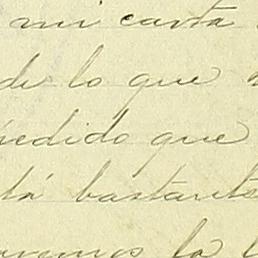 mi carta
de lo que
pedido que
tá bastante
la